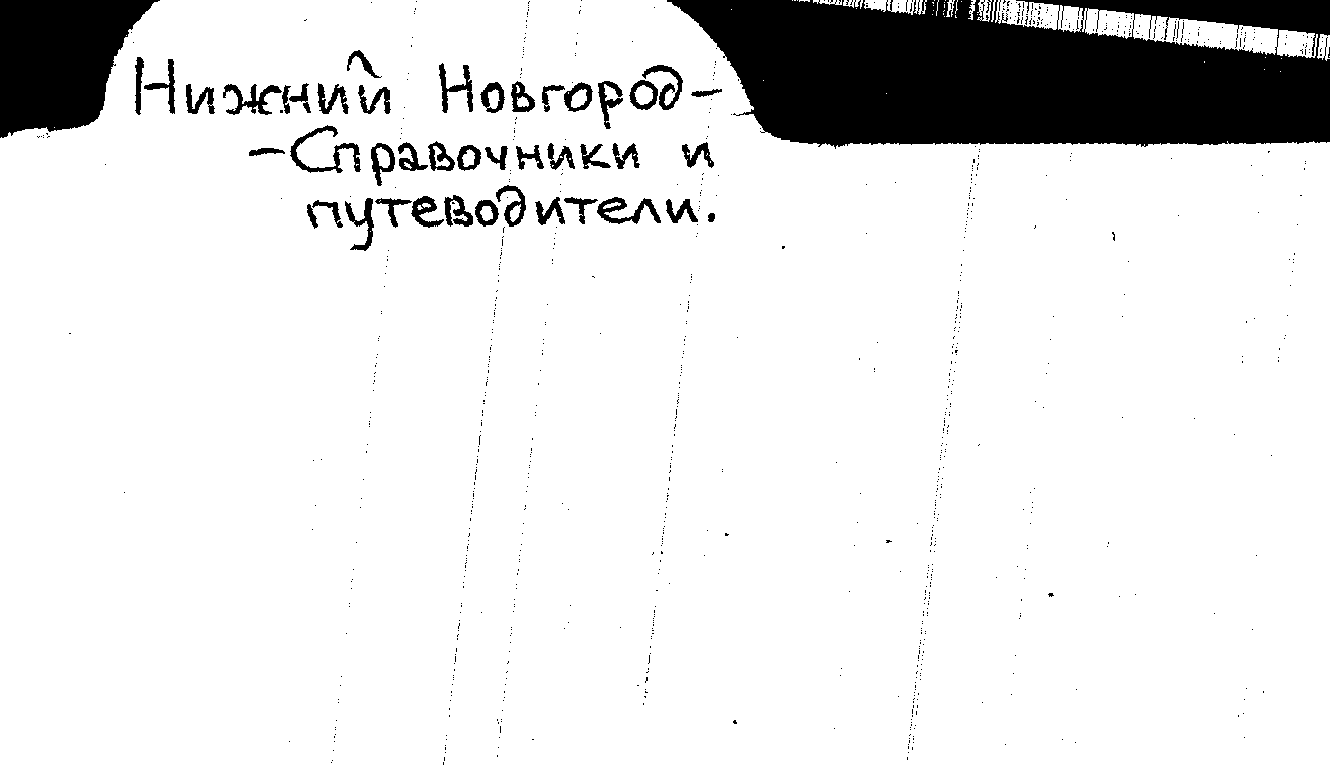 Нижний Новгород-
-Справочники и
путеводители.